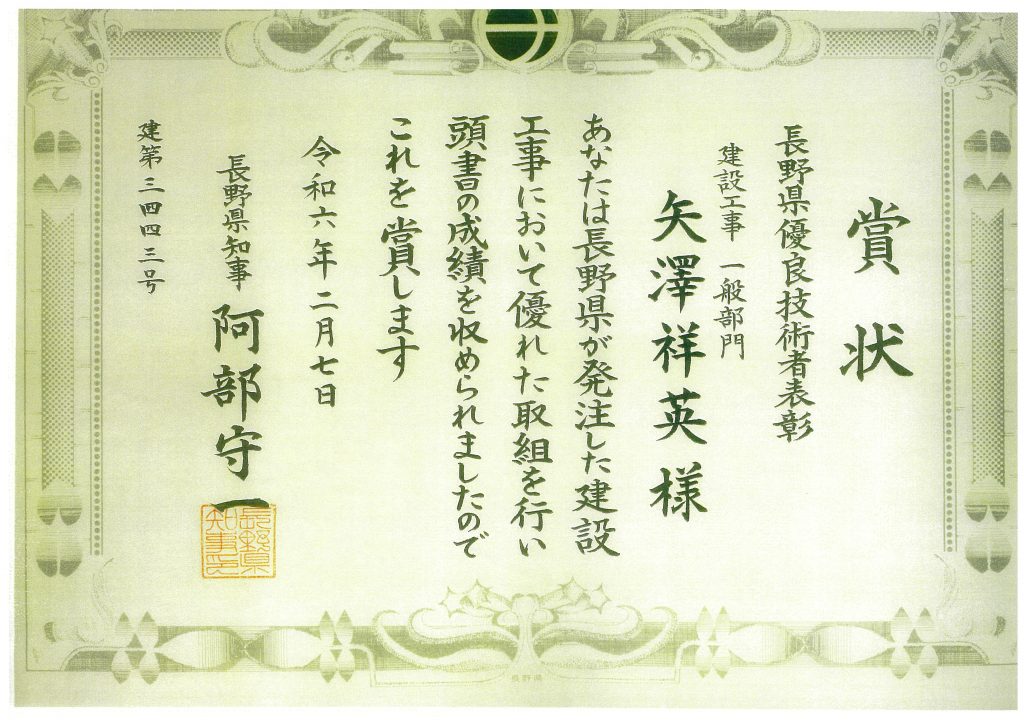 賞状
長野県優良技術者表彰
建設工事 一般部門
矢澤祥英様
あなたは長野県が発注した建設
工事において優れた取組を行い
頭書の成績を収められましたので
これを賞します
令和六年二月七日
長野県知事 阿部守一
長野県
知事之印
建第三四四三号
長野県